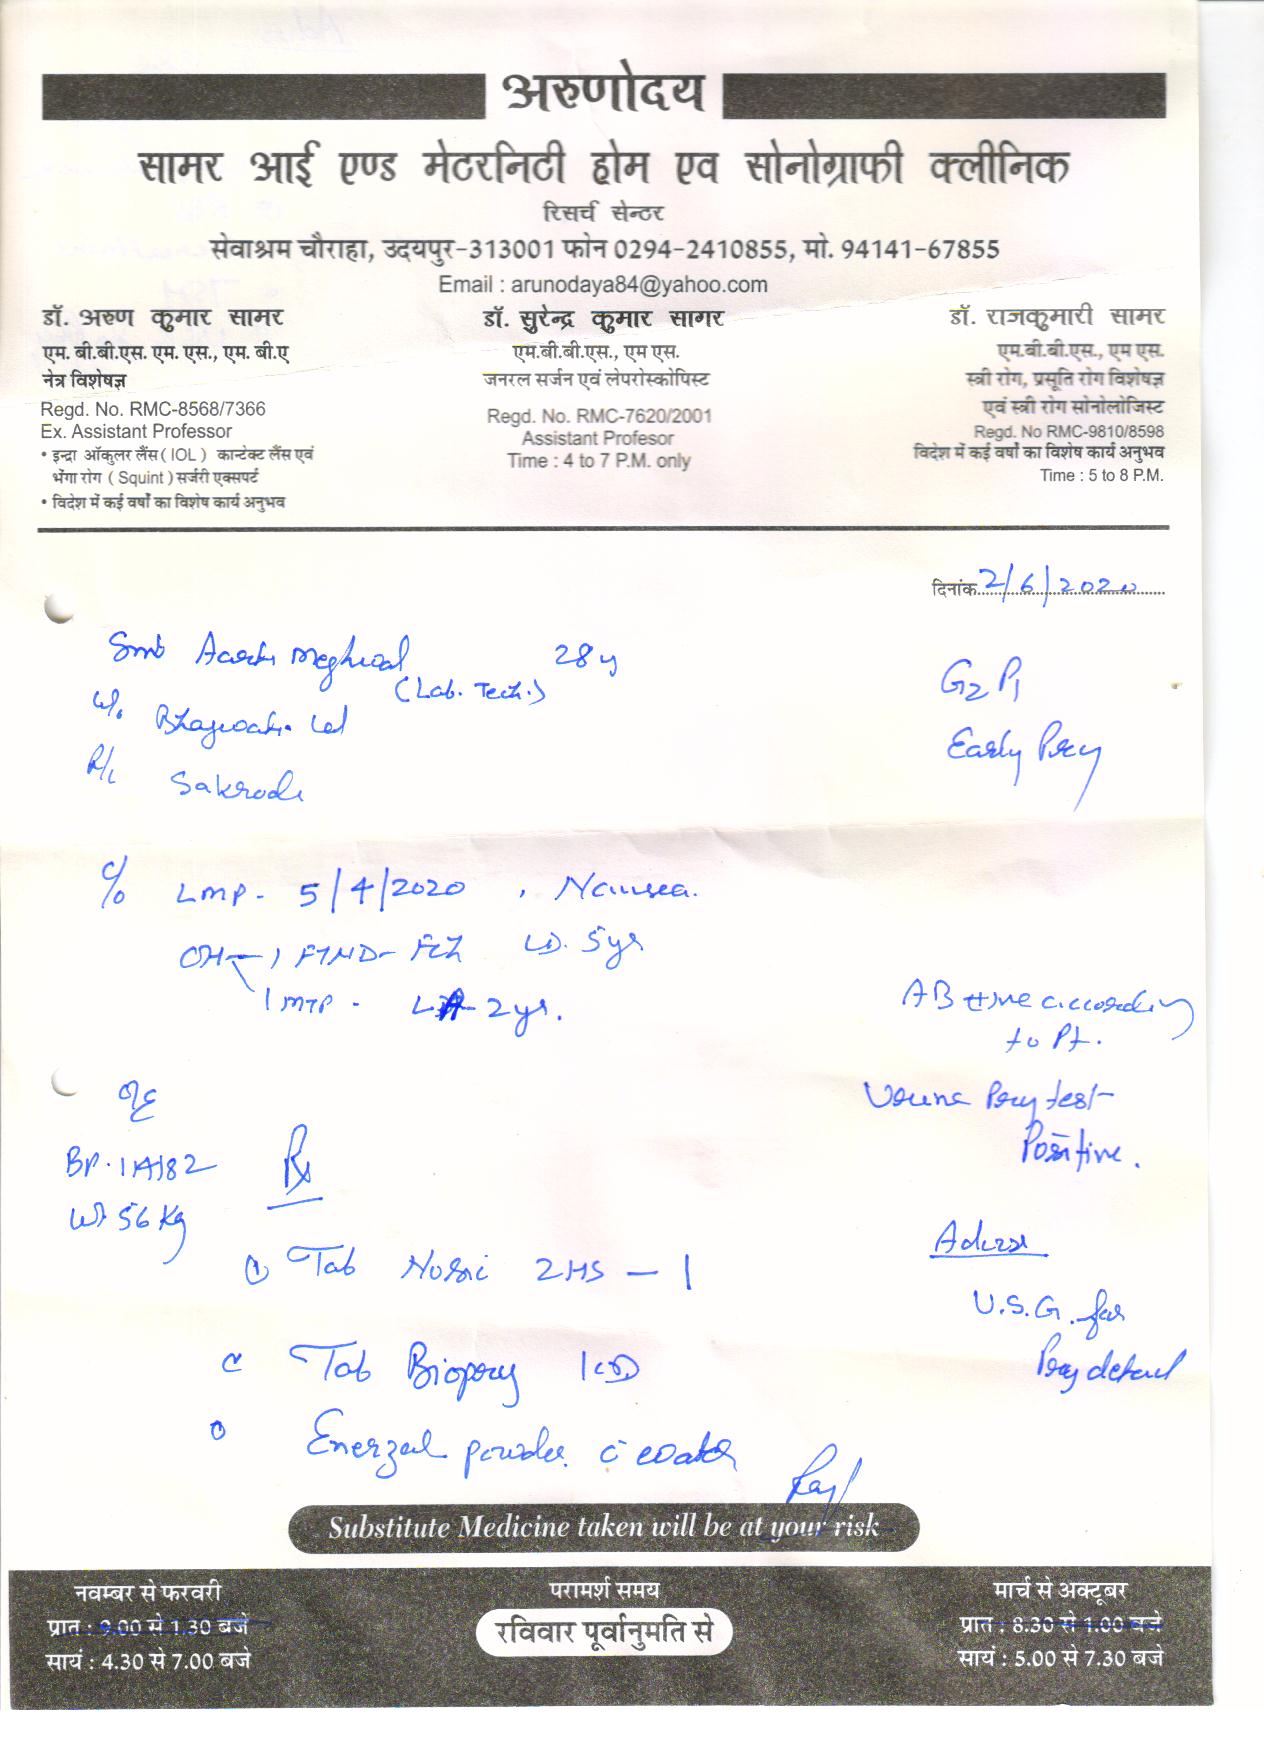 अरुणोदय
सामर आई एण्ड मेटरनिटी होम एव सोनोग्राफी क्लीनिक
रिसर्च सेन्टर
सेवाश्रम चौराहा, उदयपुर-313001 फोन 0294-2410855, मो. 94141-67855
Email : arunodaya84@yahoo.com
डॉ. अरुण कुमार सामर
एम. बी.बी.एस. एम. एस., एम. बी.ए
नेत्र विशेषज्ञ
Regd. No. RMC-8568/7366
Ex. Assistant Professor
• इन्द्रा ऑकुलर लैंस ( IOL ) कान्टेक्ट लैंस एवं
भेंगा रोग ( Squint ) सर्जरी एक्सपर्ट
• विदेश में कई वर्षों का विशेष कार्य अनुभव
डॉ. सुरेन्द्र कुमार सागर
एम.बी.बी.एस., एम एस.
जनरल सर्जन एवं लेपरोस्कोपिस्ट
Regd. No. RMC-7620/2001
Assistant Profesor
Time : 4 to 7 P.M. only
डॉ. राजकुमारी सामर
एम.बी.बी.एस., एम एस.
स्त्री रोग, प्रसूति रोग विशेषज्ञ
एवं स्त्री रोग सोनोलोजिस्ट
Regd. No RMC-9810/8598
विदेश में कई वर्षों का विशेष कार्य अनुभव
Time : 5 to 8 P.M.
दिनांक 2/6/2020
Smt Aarti Meghwal 28 y
(Lab. Tech.)
W/o Bhagwati Lal
R/o Sakroda
G2 P1
Early Preg
C/o LMP - 5/4/2020 , Nausea.
OH - 1 FTND - FCh LD. 5 yr
1 MTP - 2 yr.
AB +ive according
to Pt.
Urine Preg test -
Positive.
O/E
BP.
Wt 56 Kg
Rx
Tab Nosic 2HS - 1
Tab Biopreg 1 OD
Enerzal powder c water
Advise
U.S.G. for
Preg detail
Raj
Substitute Medicine taken will be at your risk
नवम्बर से फरवरी
प्रात : 9.00 से 1.30 बजे
सायं : 4.30 से 7.00 बजे
परामर्श समय
रविवार पूर्वानुमति से
मार्च से अक्टूबर
प्रात : 8.30 से 1.00 बजे
सायं : 5.00 से 7.30 बजे